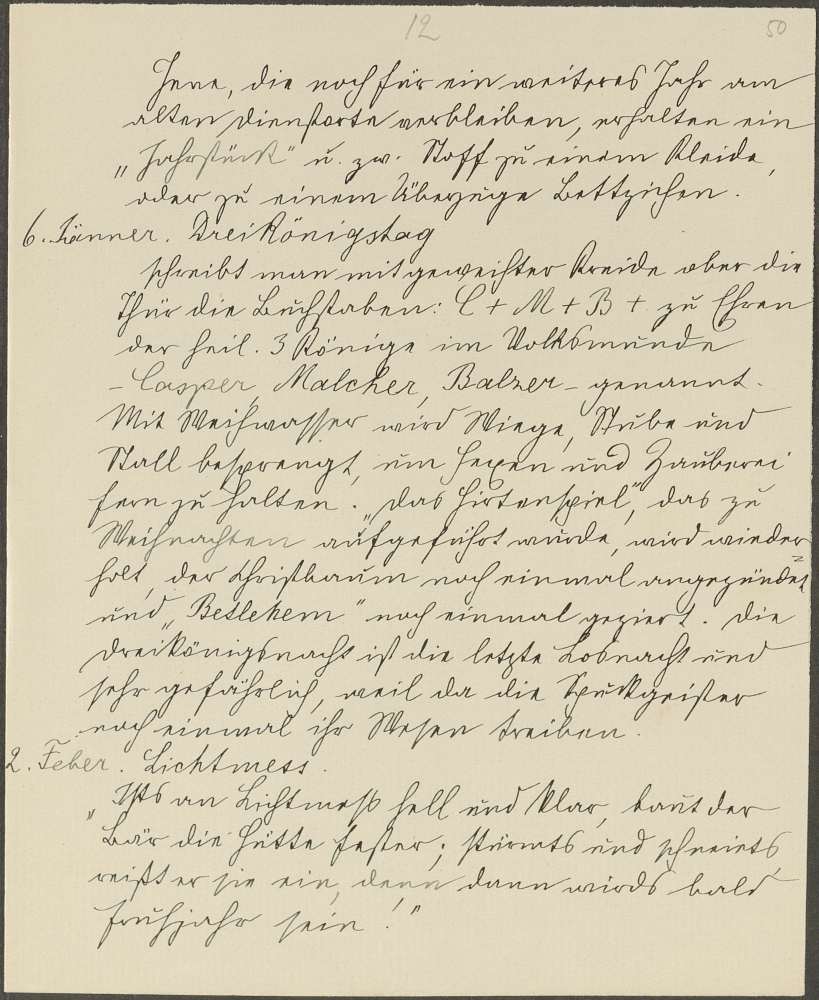 12
50
Jene, die noch für ein weiteres Jahr am
alten Dienstorte verbleiben, erhalten ein
„Jahrstück" u. zw. Stoff zu einem Kleide,
oder zu einem Überzuge Bettzichen.
6. Jänner. Dreikönigstag
schreibt man mit geweihter Kreide ober die
Thür die Buchstaben: C + M + B + zu Ehren
der heil. 3 Könige im Volksmunde
- Casper, Malcher, Balzer - genannt.
Mit Weihwasser wird Wiege, Stube und
Stall besprengt, um Hexen und Zauberei
fern zu halten. „Das Hirtenspiel", das zu
Weihnachten aufgeführt wurde, wird wieder=
holt, der Christbaum noch einmal angezündet
und „Betlehem" noch einmal geziert. Die
Dreikönigsnacht ist die letzte Losnacht und
sehr gefährlich, weil da die Spukgeister
noch einmal ihr Wesen treiben.
2. Feber. Lichtmess.
„Ists an Lichtmeß hell und klar, baut der
Bär die Hütte fester; stürmts und schneits,
reißt er sie ein, denn dann wirds bald
Frühjahr sein!"